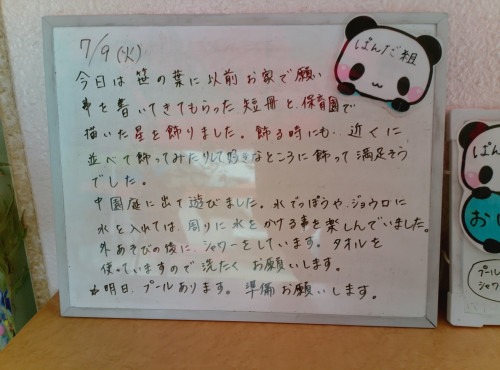 7/9(火)
ぱんだ組
今日は笹の葉に以前お家で願い
事を書いてきてもらった短冊と、保育園で
描いた星を飾りました。飾る時にも、近くに
並べて飾ってみたりして好きなところに飾って満足そう
でした。
中園庭に出て遊びました。水でっぽうや、ジョウロに
水を入れては、周りに水をかける事を楽しんでいました。
外あそびの後に、シャワーをしています。タオルを
使っていますので洗たくお願いします。
☆明日、プールあります。準備お願いします。
ぱん
お
プール
シャワ